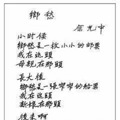 鄉愁
余光中
小时候
鄉愁是一枚小小的邮票
我在这頭
母親在那頭
長大後
鄉愁是一張窄窄的船票
我在这頭
新娘在那頭
後来啊